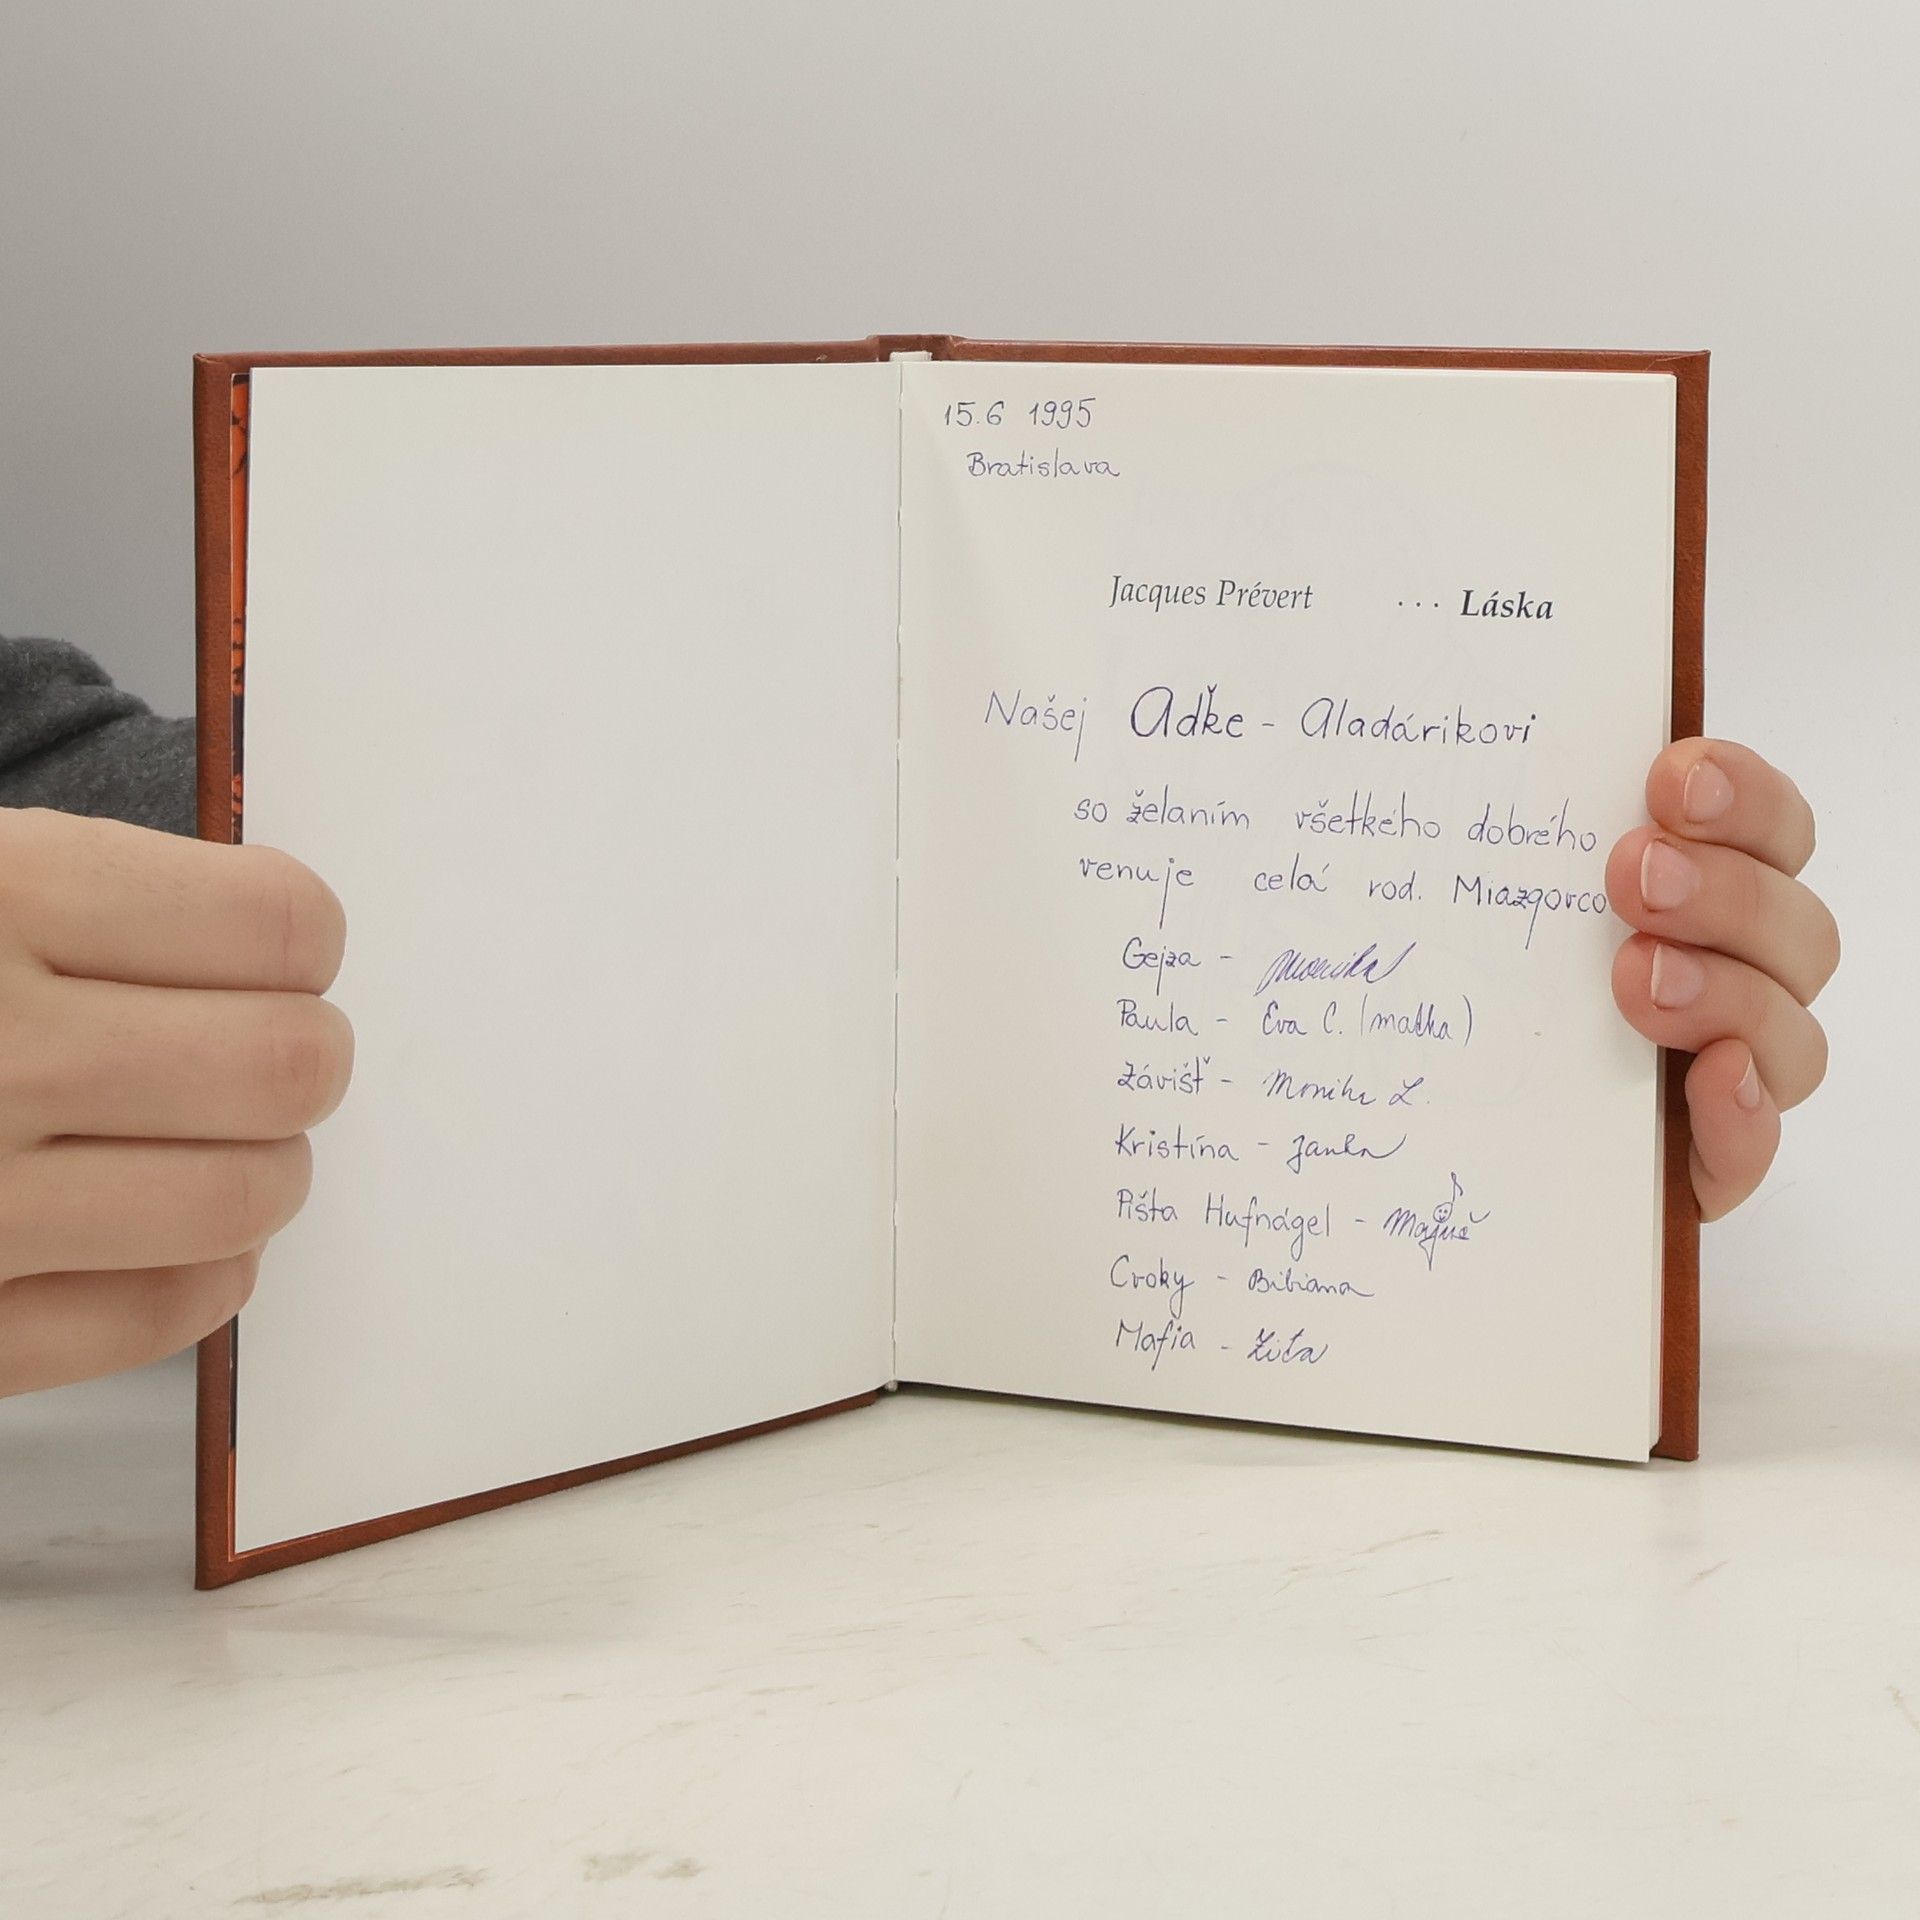 15.6 1995
Bratislava
Jacques Prévert ... Láska
Našej Aďke - Aladárikovi
so želaním všetkého dobrého
venuje celá rod. Miazgovco
Gejza - Monika
Paula - Eva C. (matka)
Závišť - Monika L.
Kristína - Janka
Pišta Hufnágel -
Cvoky - Bibiana
Mafia - Zita